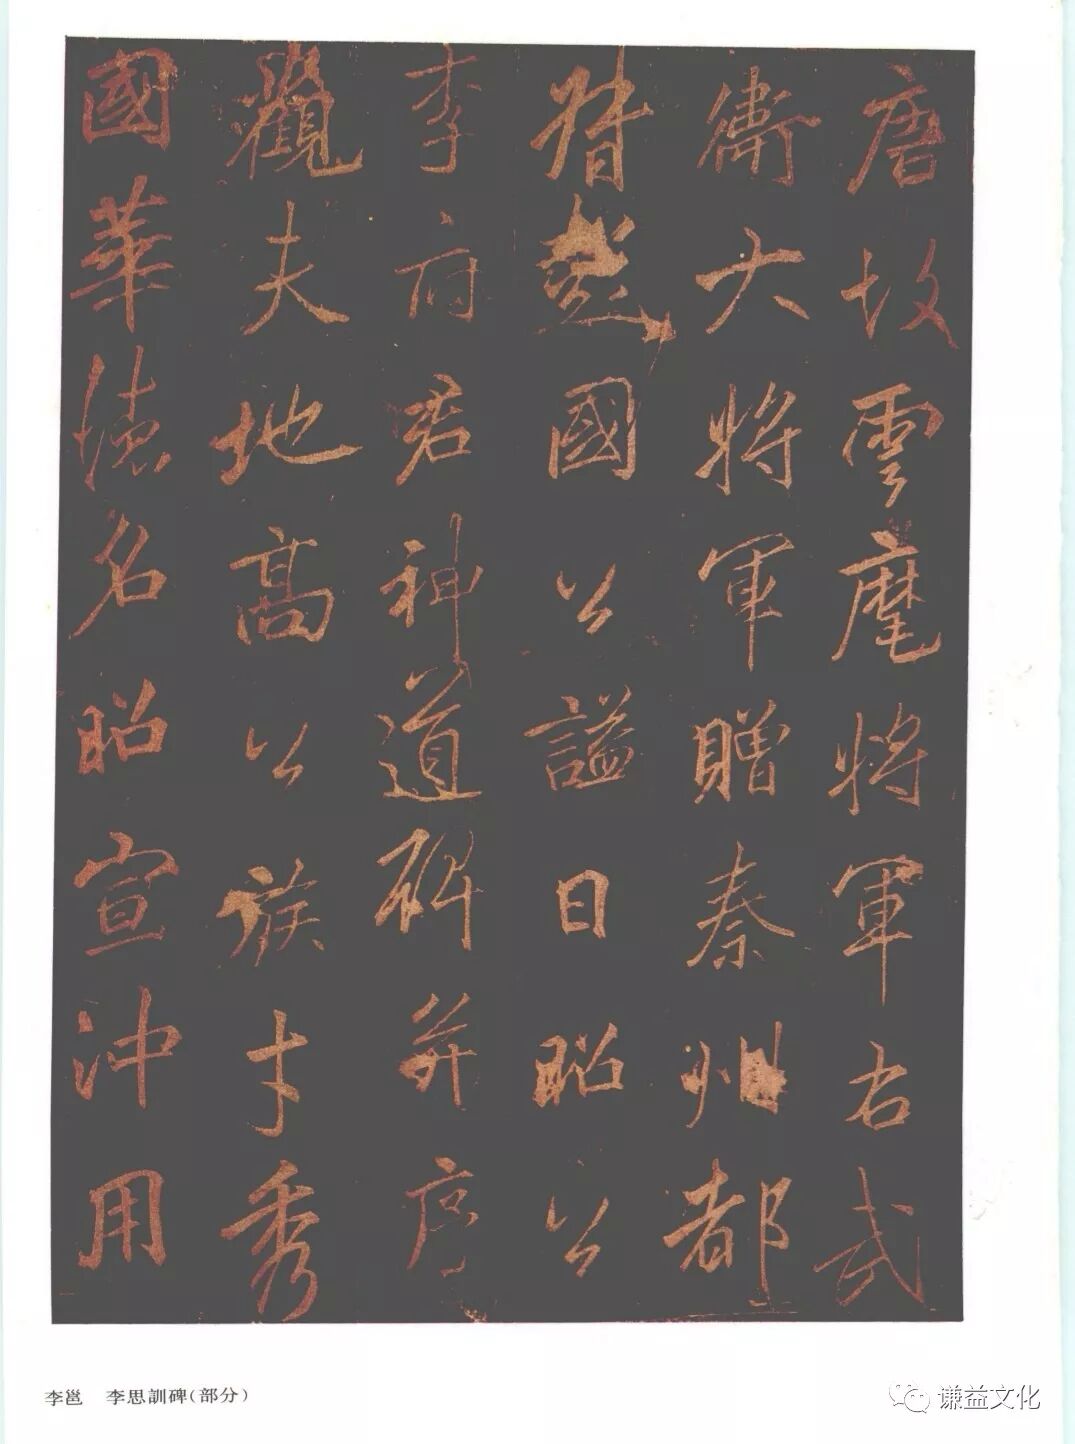 唐故雲麾將軍右武
衛大將軍贈秦州都
督彭國公謚曰昭公
李府君神道碑并序
觀夫地高公族才秀
國華德名昭宣沖用
李邕 李思訓碑(部分)
谦益文化